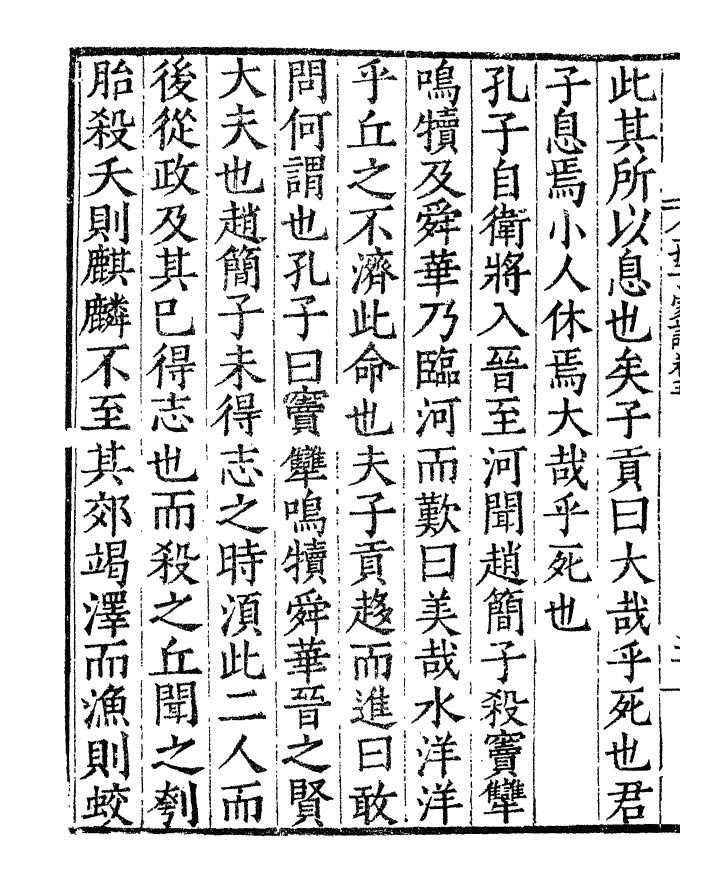 此其所以息也矣子貢曰大哉乎死也君
子息焉小人休焉大哉乎死也
孔子自衛將入晉至河聞趙簡子殺竇犨
鳴犢及舜華乃臨河而歎曰美哉水洋洋
乎丘之不濟此命也夫子貢趍而進曰敢
問何謂也孔子曰竇犨鳴犢舜華晉之賢
大夫也趙簡子未得志之時湏此二人而
後從政及其巳得志也而殺之丘聞之刳
胎殺夭則麒麟不至其郊竭澤而漁則蛟